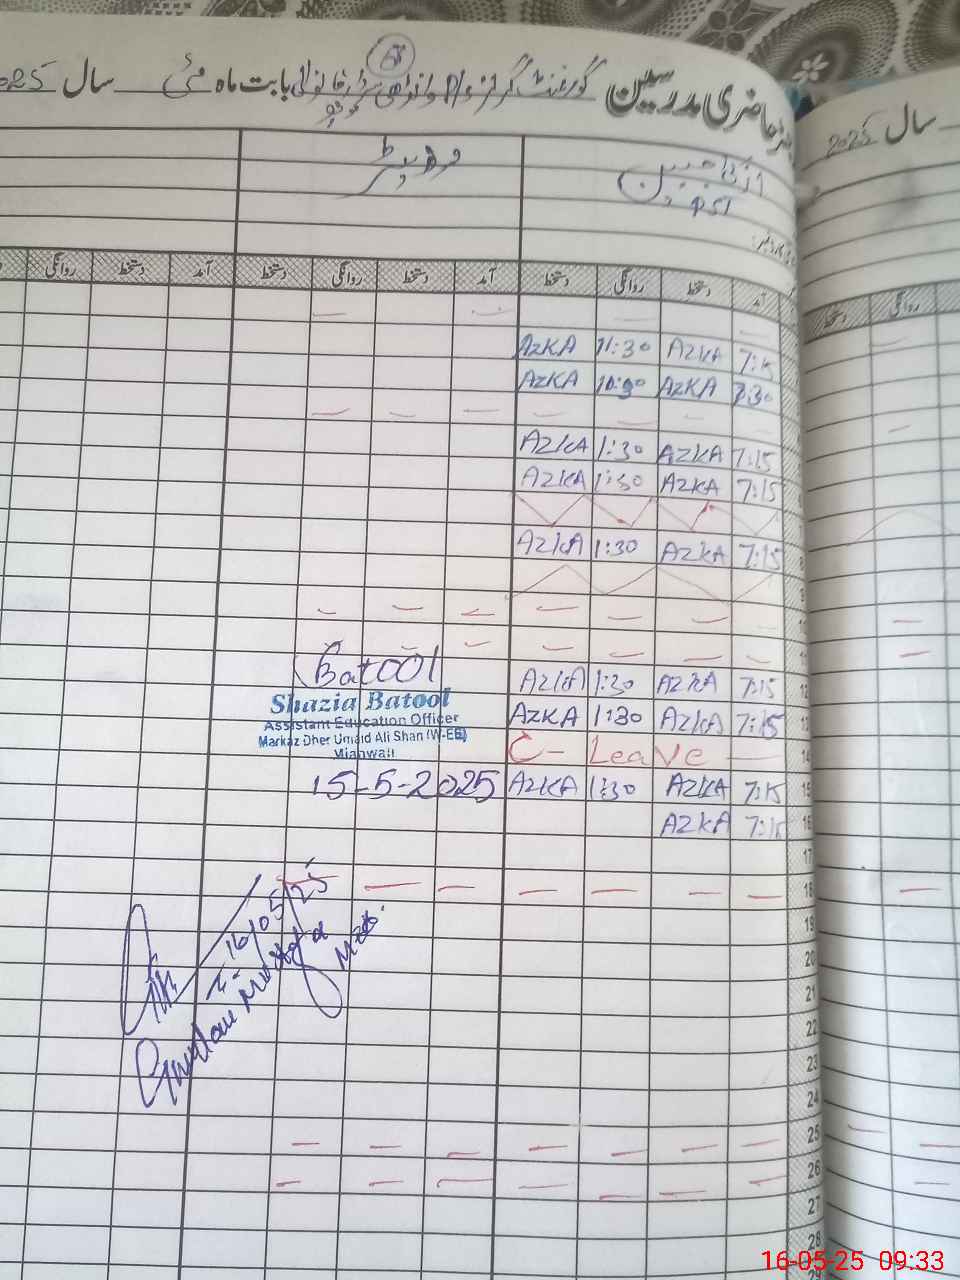 حاضری مدرسین گورنمنٹ گرلز بابت ماہ مئی سال 2025
سال 2025
آمد دستخط روانگی دستخط آمد دستخط روانگی دستخط آمد دستخط روانگی
دستخط روانگی
7:15 AZKA 11:30 AZKA
7:30 AZKA 10:30 AZKA
7:15 AZKA 1:30 AZKA
7:15 AZKA 1:30 AZKA
8 7:15 AZKA 1:30 AZKA
9
12 7:15 AZKA 1:30 AZKA
13 7:15 AZKA 1:30 AZKA
14 C- Leave
15 7:15 AZKA 1:30 AZKA
16 7:15 AZKA
Batool
Shazia Batool
Assistant Education Officer
Markaz Dher Umaid Ali Shah (W-EE)
Mianwali
15-5-2025
17
18
19
20
21
22
23
24
25
26
27
28
29
16/05/25
16-05-25 09:33